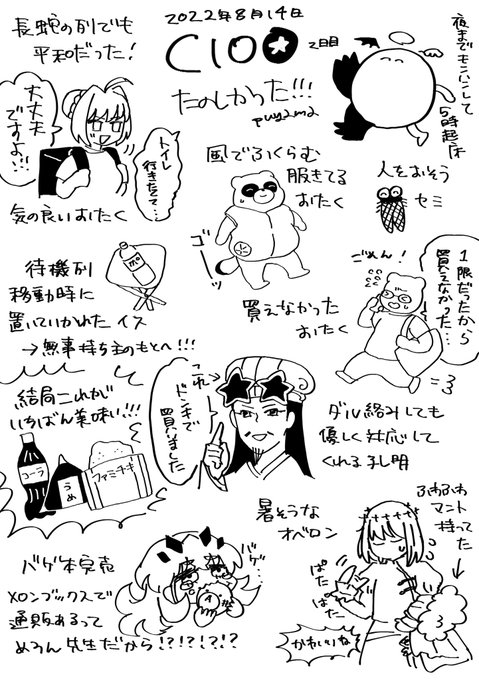 2022年8月14日
C100 2日目
たのしかった!!!
puyama
長蛇の列でも
平和だった!
大丈夫
ですよ!!
トイレ
行きたくて…
気の良いおたく
夜までモンハンして
5時起床
風でふくらむ
服きてる
おたく
ゴーッ
人をおそう
セミ
待機列
移動時に
置いていかれたイス
→無事持ち主のもとへ!!!
ごめん!
1限だったから
買えなかった…
買えなかった
おたく
=3
結局これが
いちばん美味い!!!
コーラ
うめ
ファミチキ
これ→
ドンキで
買いました
ダル絡みしても
優しく対応して
くれる孔明
バゲ本完売
メロンブックスで
通販あるって
めろん先生だから!?!?!?!?
バゲ…
暑そうな
オベロン
ふわふわ
マント持ってた
ぱた
ぱた
かわいいな